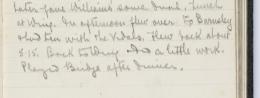 Later gave Williams some dual. Lunch
at Wing. In afternoon flew over to Barnsley
& had tea with the Kidars. Flew back about
5.15. Back to Wing. Did a little work.
Played Bridge after dinner.